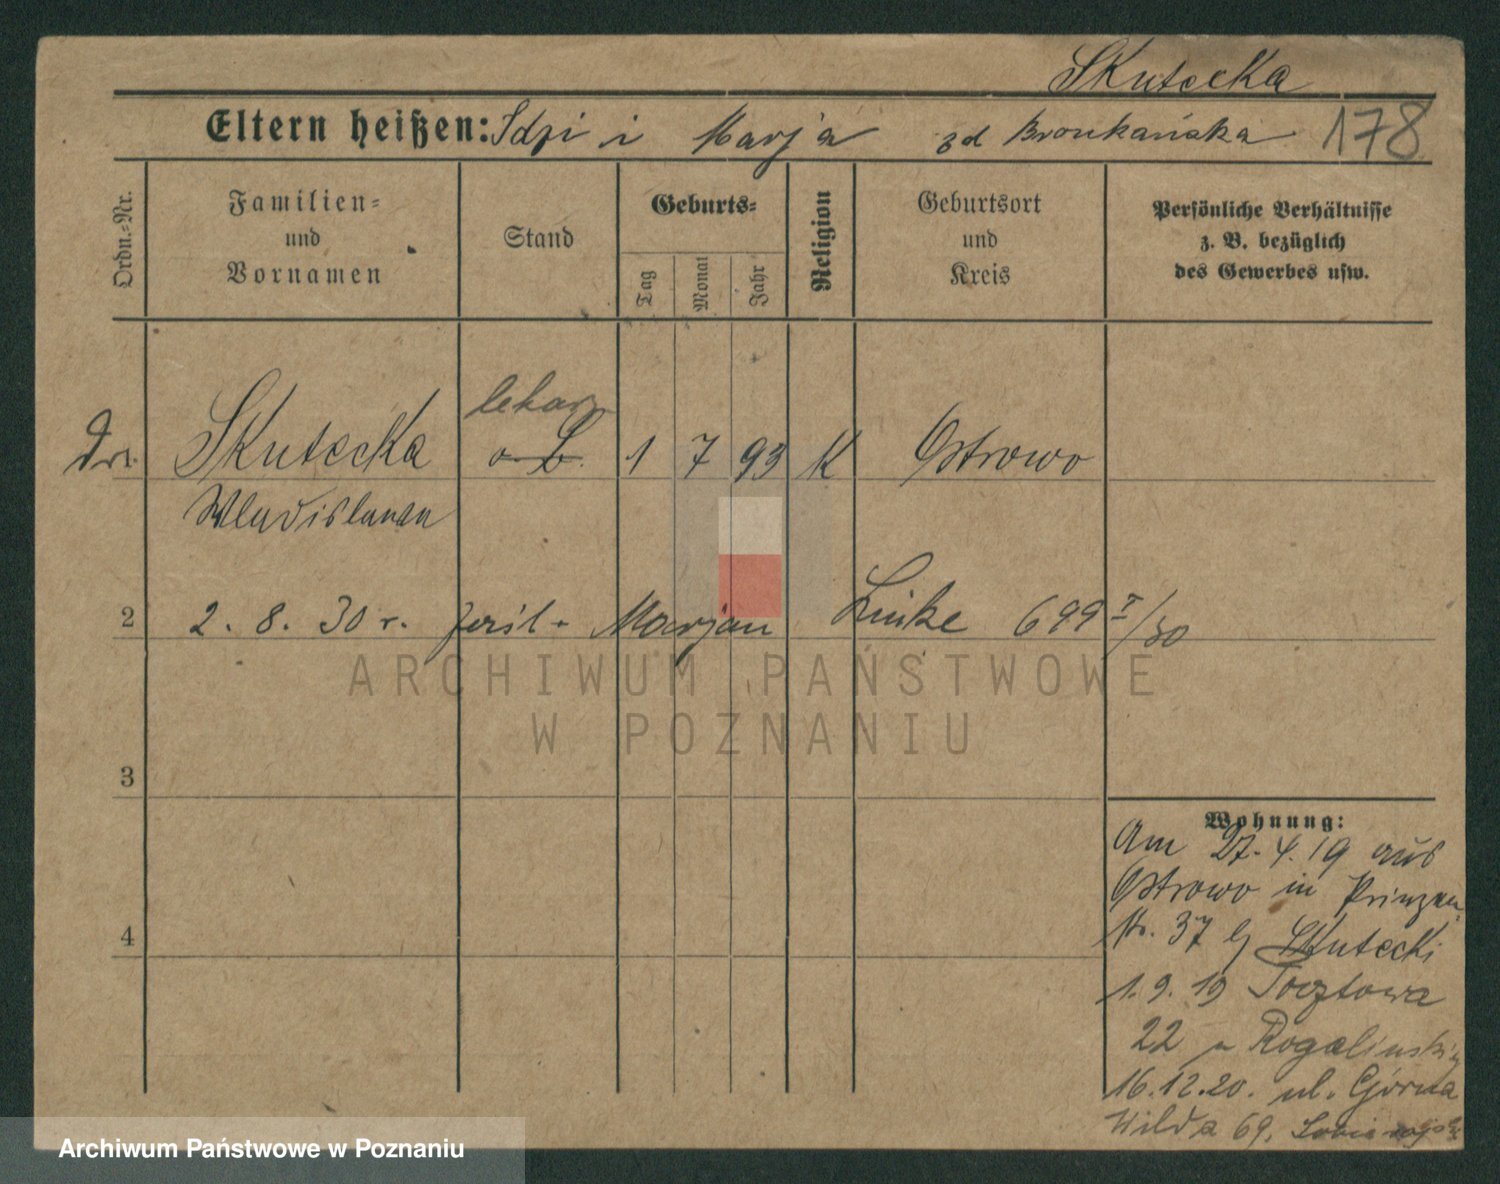 Skutecka
Eltern heißen: Idzi i Marja zd Bronkańska 178
Ordn.=Nr.
Familien=
und
Vornamen
Stand
Geburts=
Tag
Monat
Jahr
Religion
Geburtsort
und
Kreis
Persönliche Verhältnisse
z. B. bezüglich
des Gewerbes usw.
lekarz
Skutecka o. B. 1 7 93 K Ostrowo
Wladislawa
2 2. 8. 30 r. Marjan Linke 699 I/30
ARCHIWUM PAŃSTWOWE
W POZNANIU
3
Wohnung:
Am 27. 4. 19 aus
Ostrowo in Prinzen
str. 37 b/ Skutecki
4
1. 9. 19 Pocztowa
22 Rogalinski
16.12.20. ul. Górna
Wilda 69.
Archiwum Państwowe w Poznaniu